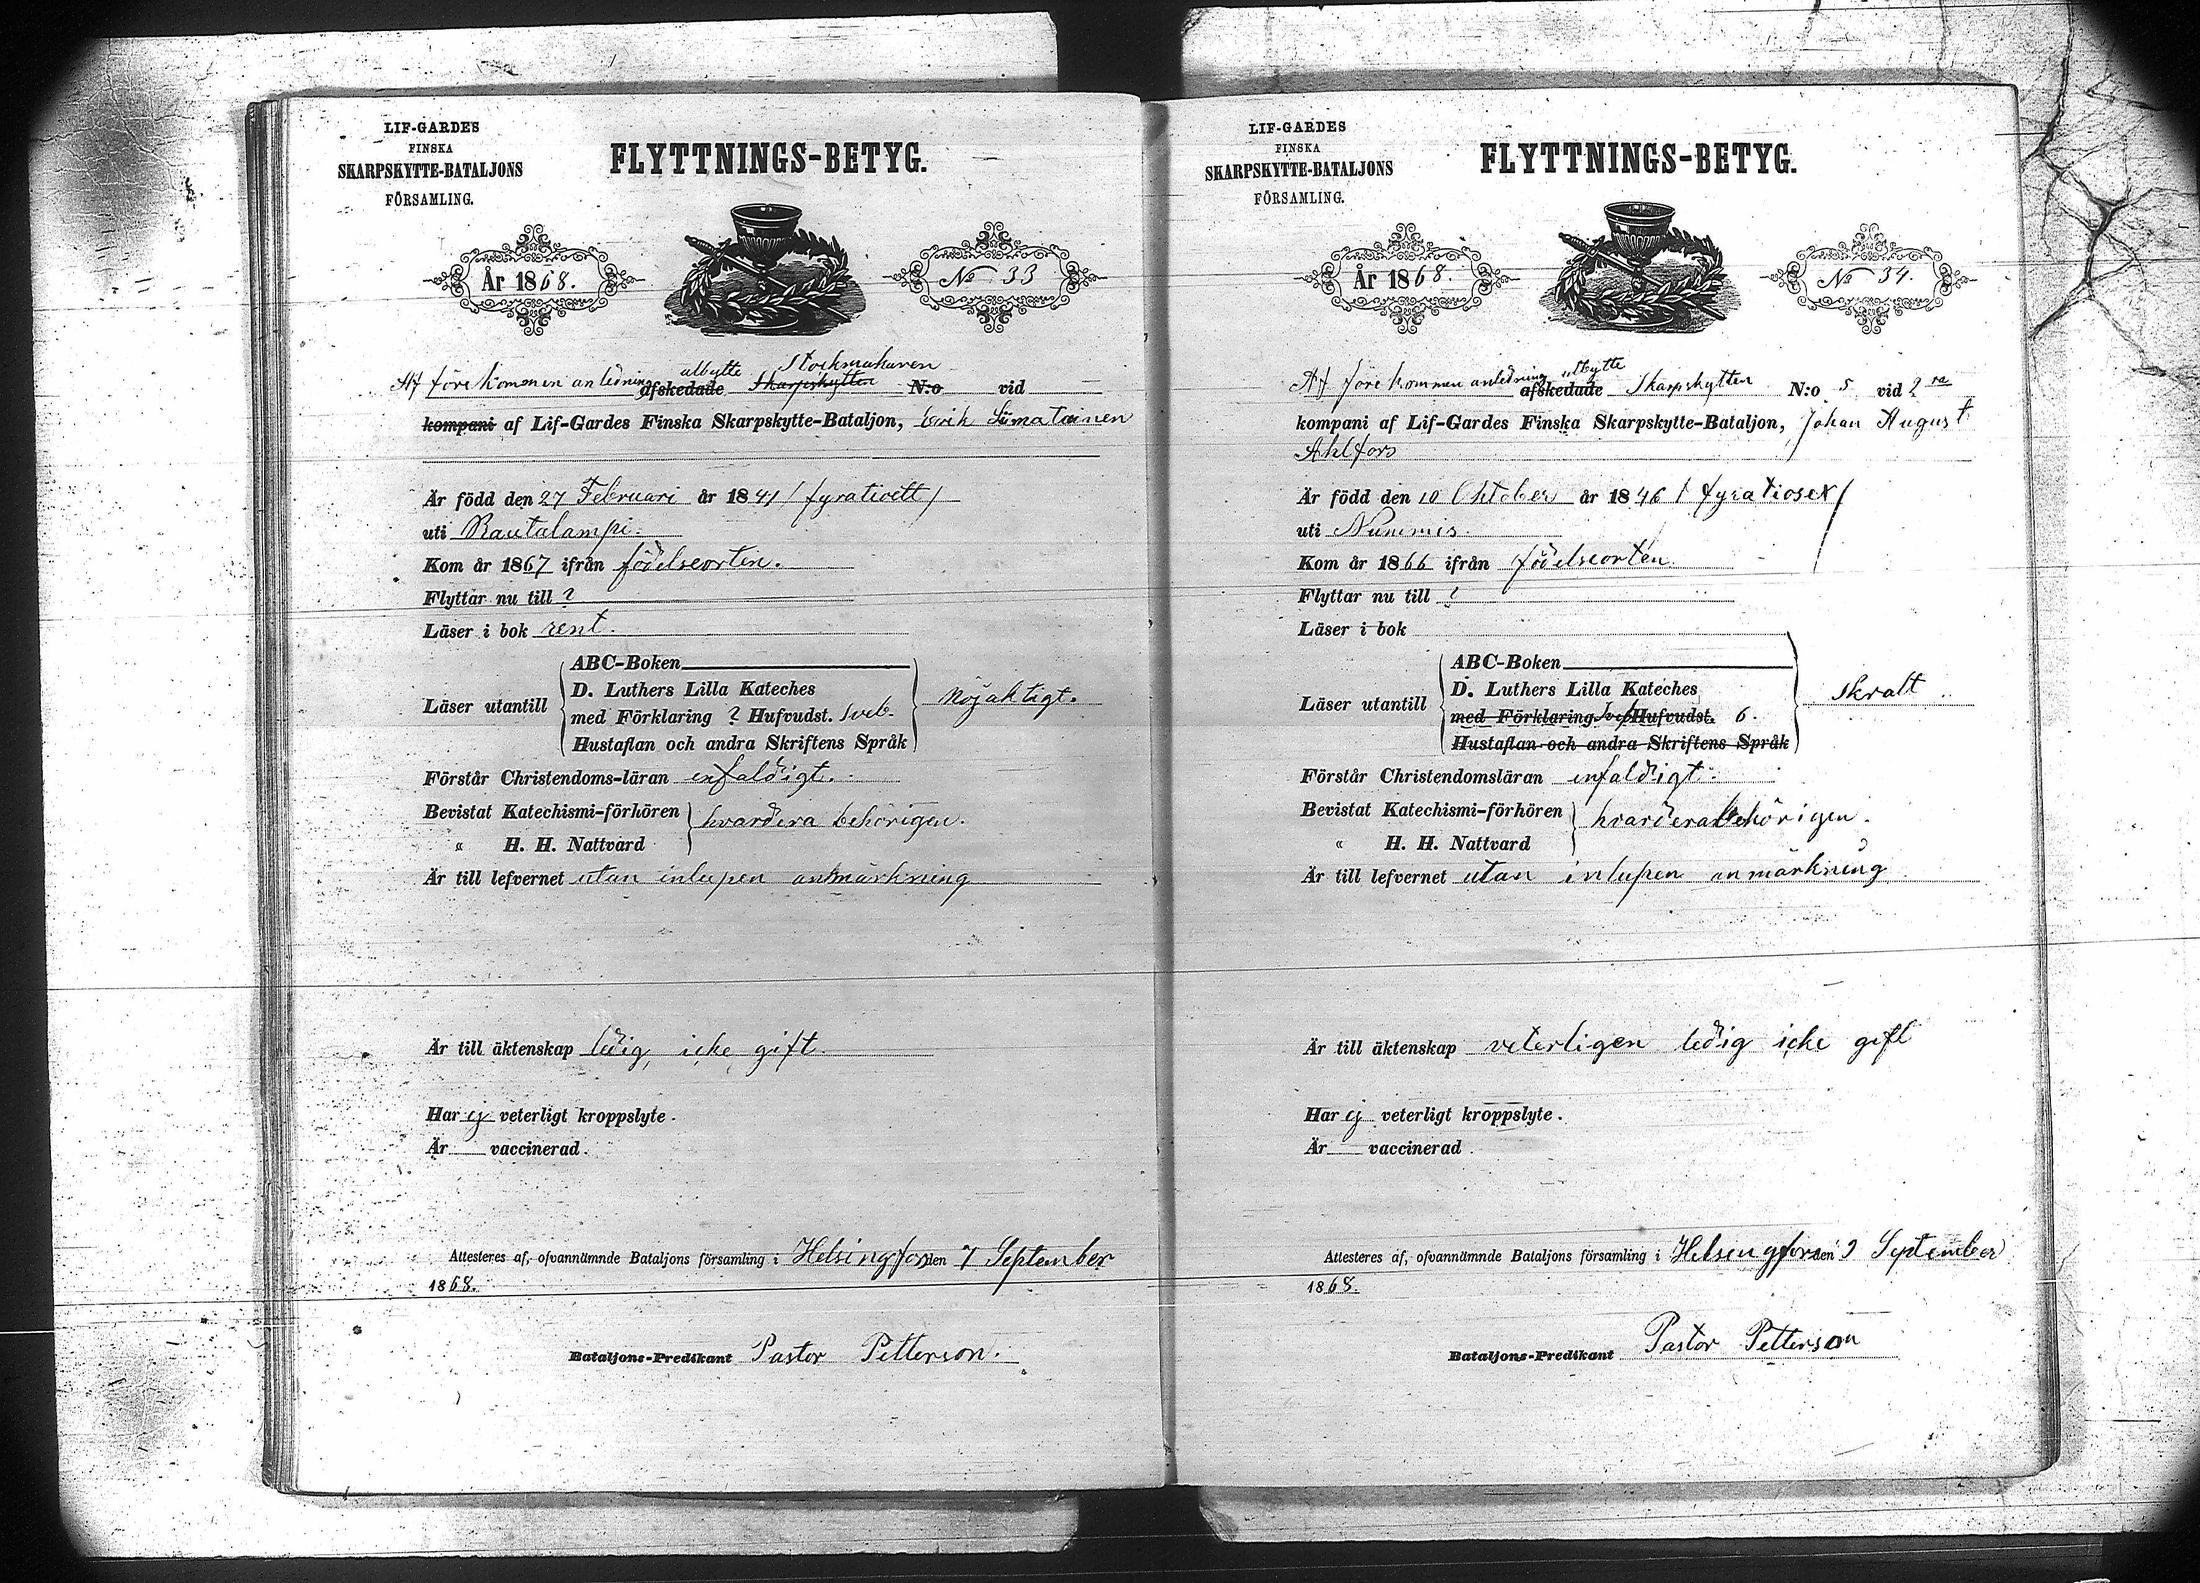 LIF-GARDES
FINSKA
SKARPSKYTTE-BATALJONS
FÖRSAMLING.
FLYTTNINGS-BETYG.
År 1868.
No 33
utbytte Stockmakaren
Af förekommen anledning afskedade Skarpskytten N:o vid
kompani af Lif-Gardes Finska Skarpskytte-Bataljon, Erik Siimatainen
Är född den 27 Februari år 1841 / fyratiett /
uti Rautalampi.
Kom år 1867 ifrån födelseorten.
Flyttar nu till ?
Läser i bok rent.
ABC-Boken
D. Luthers Lilla Kateches
Läser utantill med Förklaring ? Hufvudst. Sveb. nöjaktigt.
Hustaflan och andra Skriftens Språk
Förstår Christendoms-läran enfaldigt.
Bevistat Katechismi-förhören hvardera behörigen.
" H. H. Nattvard
Är till lefvernet utan inlupen anmärkning
Är till äktenskap ledig, icke gift.
Har ej veterligt kroppslyte.
Är vaccinerad.
Attesteres af, ofvannämnde Bataljons församling i Helsingfors den 7 September
1868.
Bataljons-Predikant Pastor Petterson.
LIF-GARDES
FINSKA
SKARPSKYTTE-BATALJONS
FÖRSAMLING.
FLYTTNINGS-BETYG.
År 1868.
No 34.
utbytte
Af förekommen anledning afskedade Skarpskytten N:o 5 vid 2ra
kompani af Lif-Gardes Finska Skarpskytte-Bataljon, Johan August
Ahlfors
Är född den 10 Oktober år 1846 / fyratiosex /
uti Nummis.
Kom år 1866 ifrån födelseorten.
Flyttar nu till ?
Läser i bok
ABC-Boken
D. Luthers Lilla Kateches
Läser utantill med Förklaring Hufvudst. 6. Skralt
Hustaflan och andra Skriftens Språk
Förstår Christendomsläran enfaldigt.
Bevistat Katechismi-förhören hvardera behörigen.
" H. H. Nattvard
Är till lefvernet utan inlupen anmärkning
Är till äktenskap veterligen ledig icke gift
Har ej veterligt kroppslyte.
Är vaccinerad.
Attesteres af, ofvannämnde Bataljons församling i Helsingfors den 9 September
1868.
Bataljons-Predikant Pastor Petterson